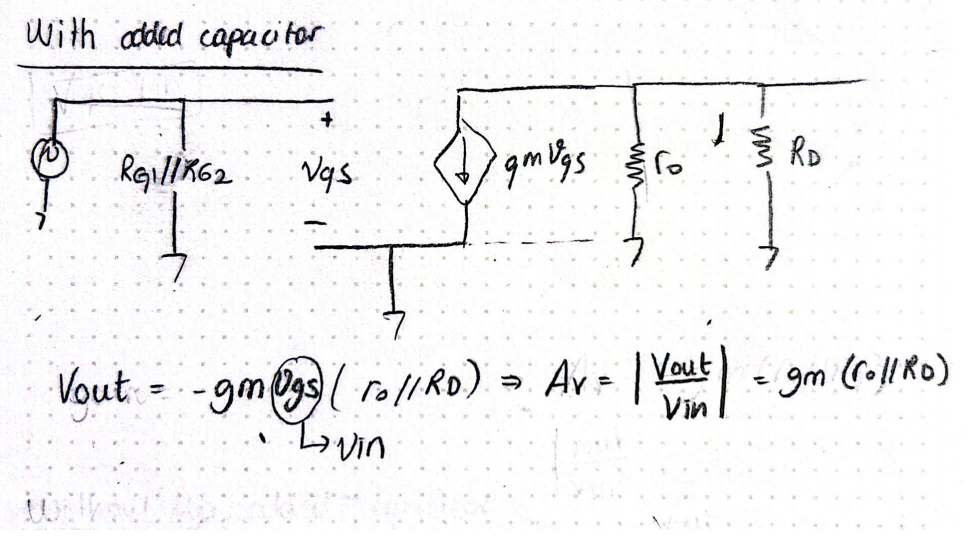 With added capacitor
RG1//RG2
+
Vgs
−
gmVgs
ro
RD
Vout = -gm Vgs ( ro // RD ) ⇒ Av = | Vout / Vin | = gm (ro // RD)
↳ Vin